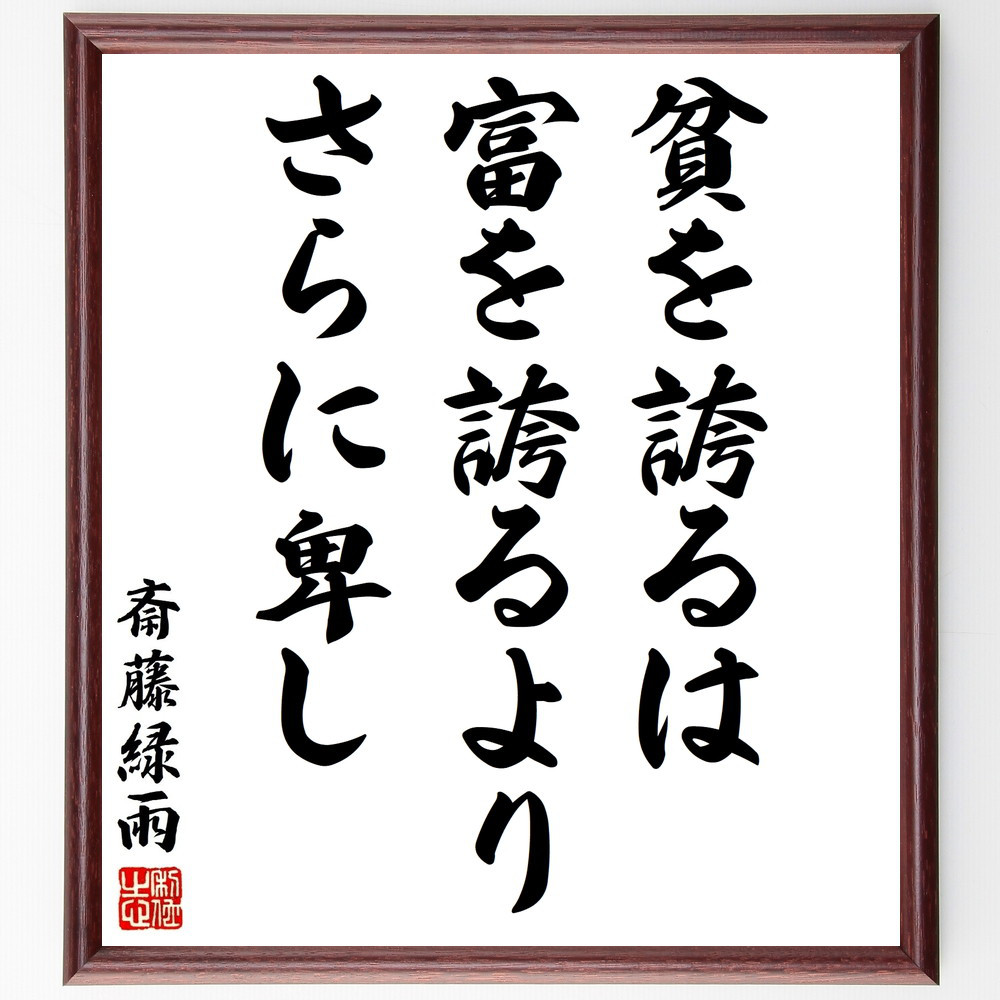 貧を誇るは
富を誇るより
さらに卑し
斎藤緑雨